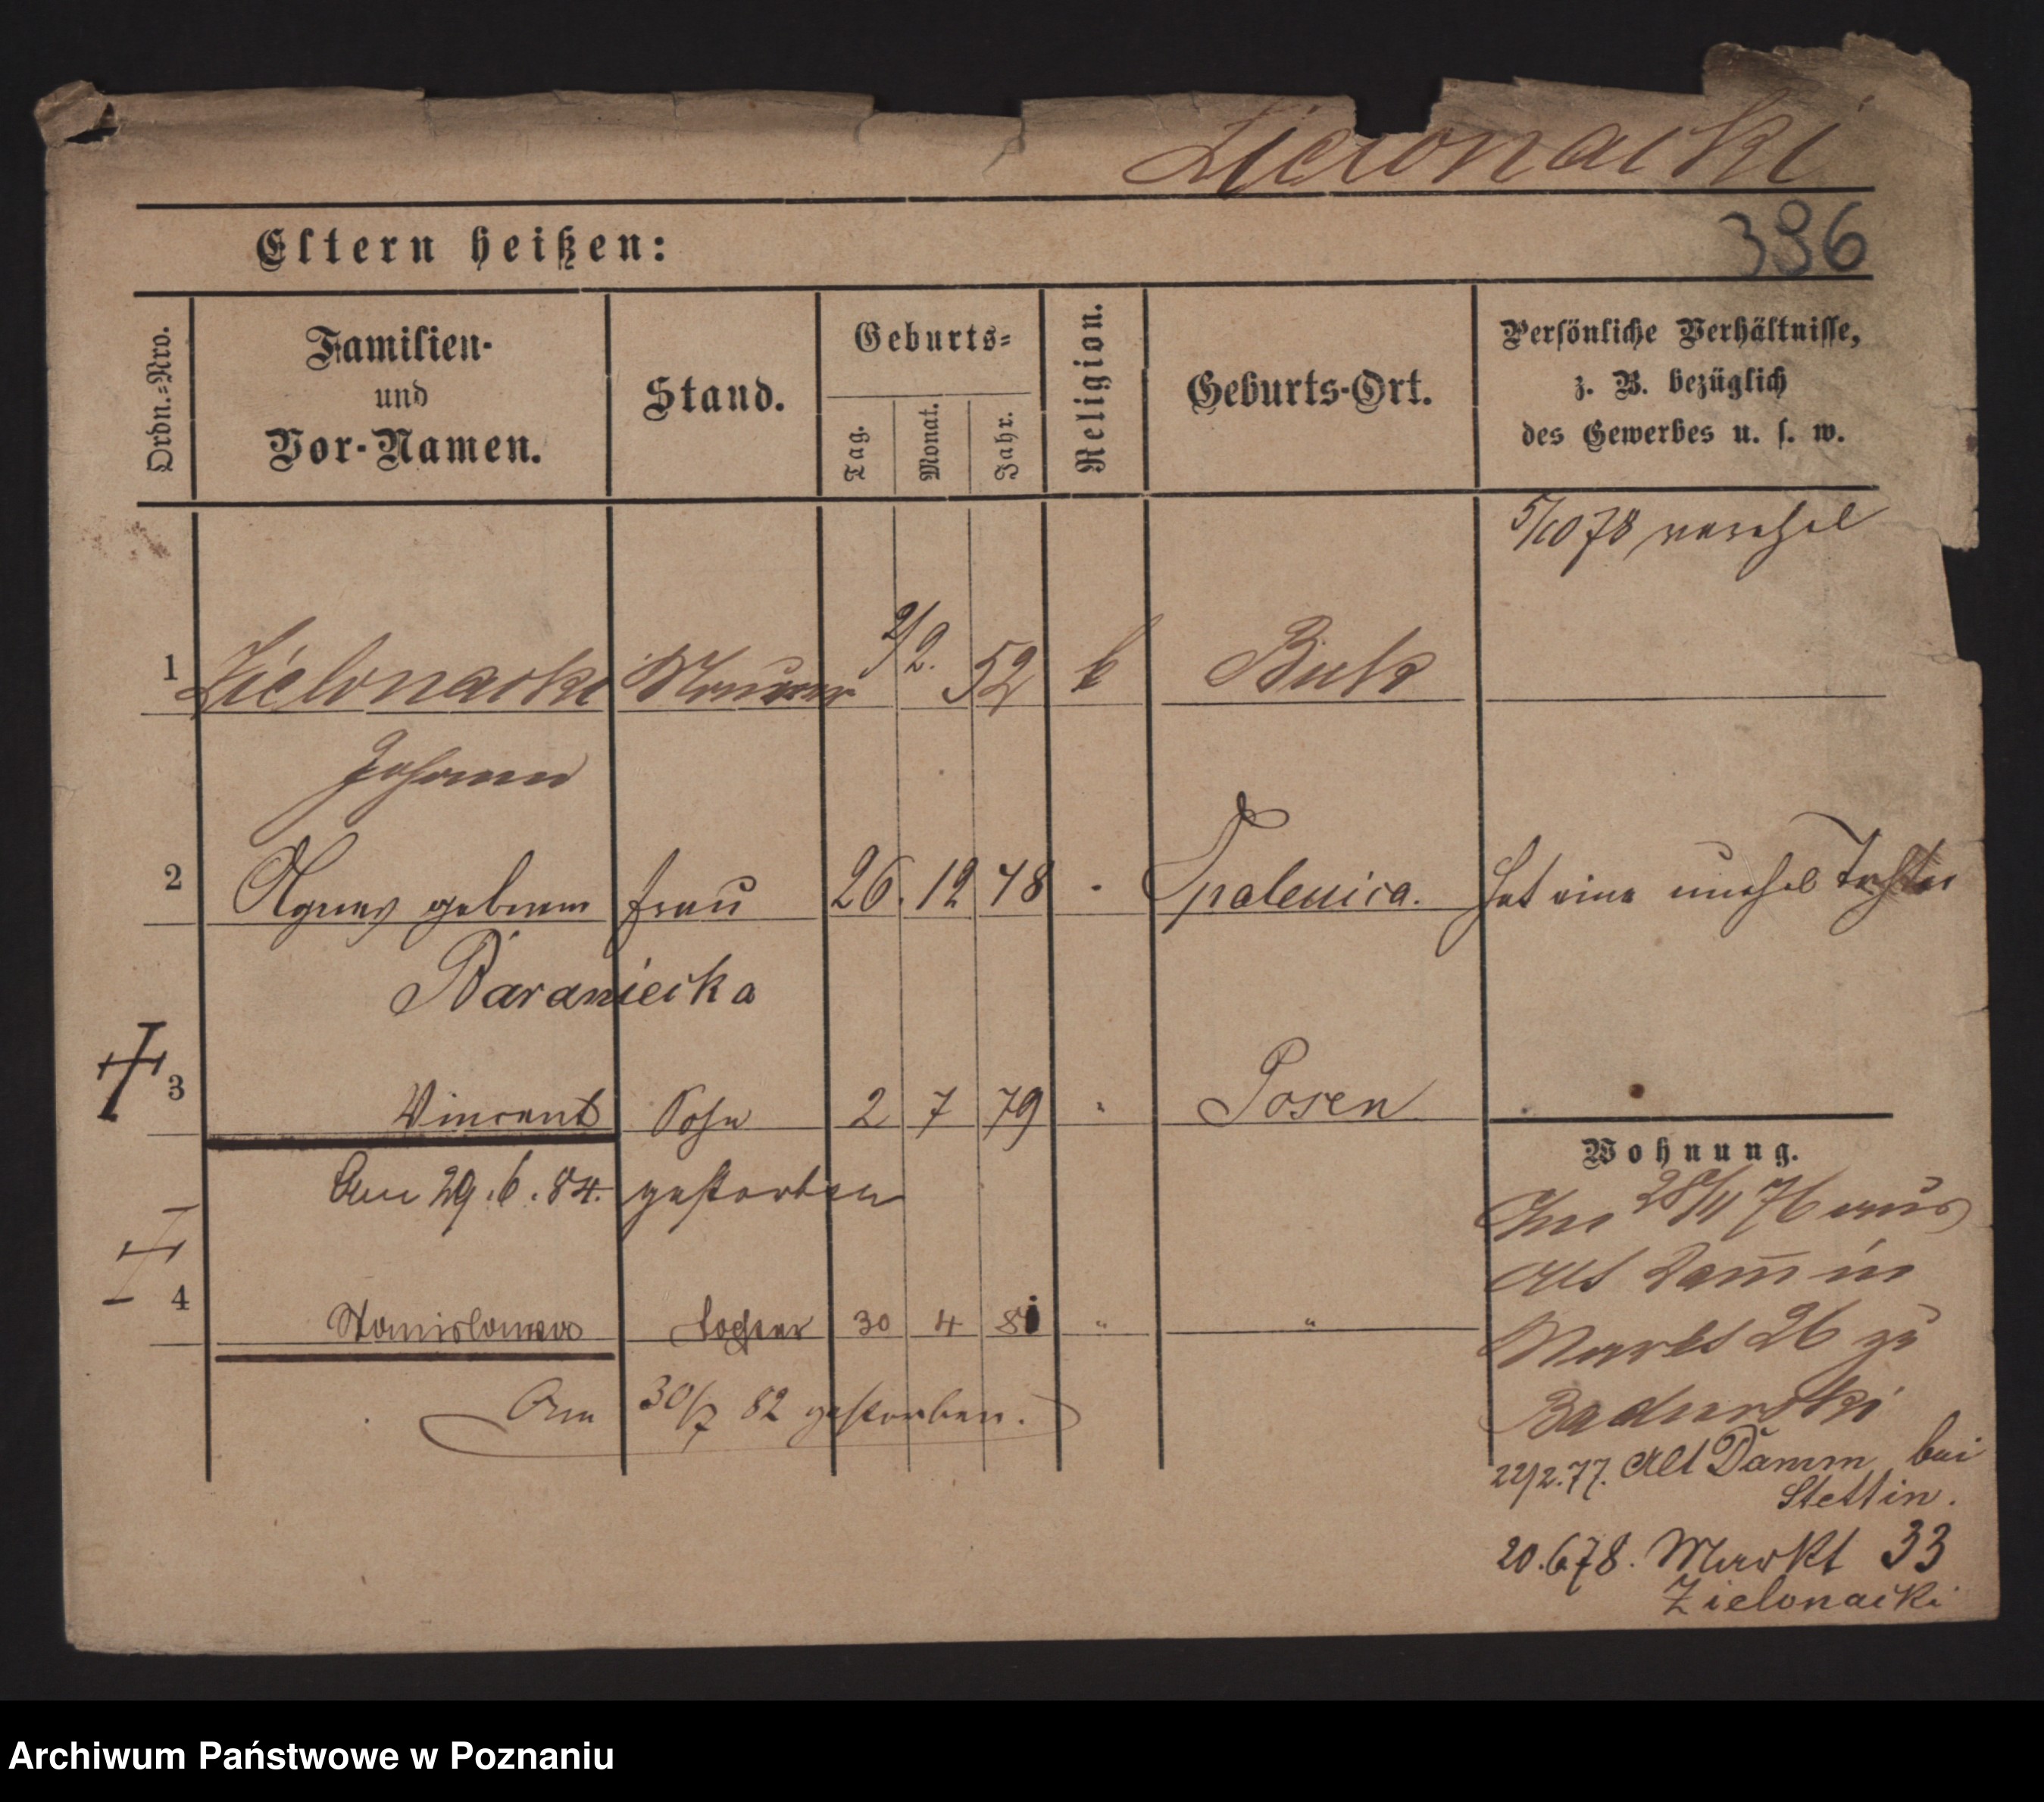 Zielonacki
396
Eltern heißen:
Ordn.=Nro.
Familien-
und
Vor-Namen.
Stand.
Geburts=
Tag.
Monat.
Jahr.
Religion.
Geburts-Ort.
Persönliche Verhältnisse,
z. B. bezüglich
des Gewerbes u. s. w.
5/10 78 verehel
1 Zielonacki Maurer 2/2. 52 k Buk
Johann
2 Agnes geborne Frau 26. 12 48 " Opalenica. Hat eine unehel Tochter
Baraniecka
3 Vincent Sohn 2 7 79 " Posen
Am 29.6.84. gestorben
4 Stanislawa Tochter 30 4 81 " "
Am 30/7 82 gestorben.
Wohnung.
28/11 76 aus
Alt Dam̄ in
Markt 26 zu
Badurski
22/2.77. Alt Damm bei
Stettin.
20.6.78. Markt 33
Zielonacki
Archiwum Państwowe w Poznaniu